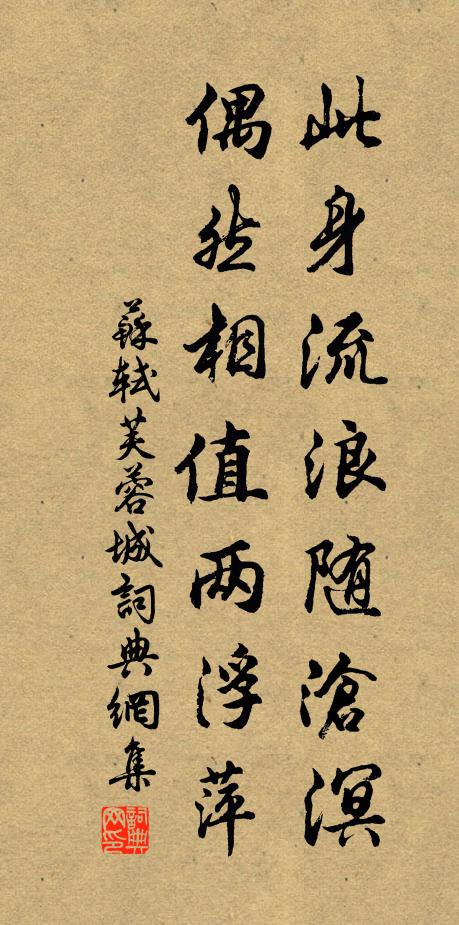 此身流浪随滄溟
偶然相值两浮萍
蘇軾芙蓉城詞典網集
詞典网印